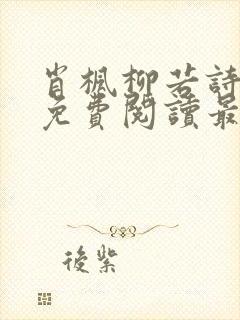 肖楓柳若詩
免費閱讀最
後紫